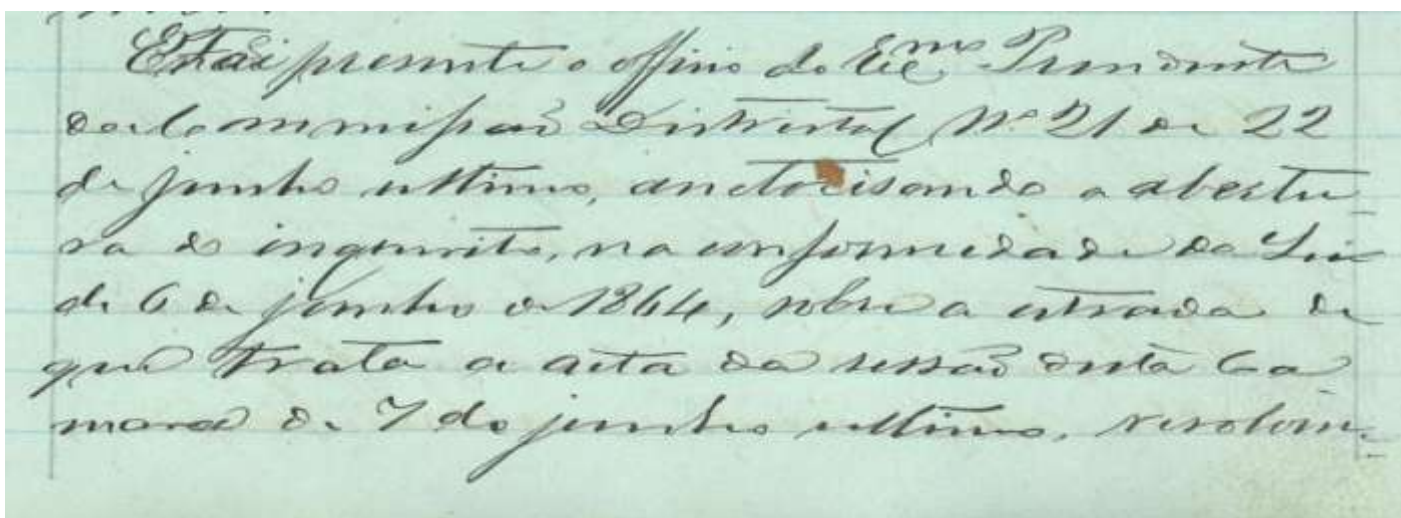 Foi presente o officio do Exmo Presidente
da Commissão Districtal Nº 21 de 22
de junho ultimo, auctorisando a abertu
ra do inquerito, na conformidade da Lei
de 6 de junho de 1864, sobre a estrada de
que trata a acta da sessão desta Ca
mara de 7 de junho ultimo,